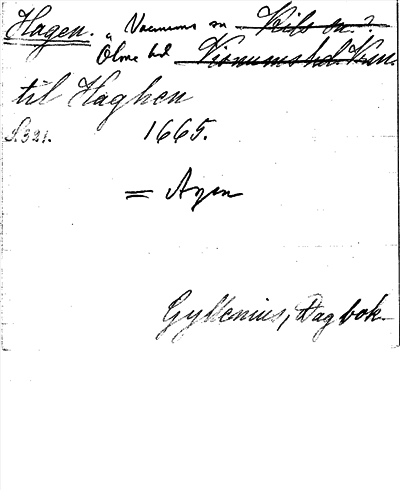 Hagen. „ Varnums sn Kils sn.?
Ölme hd Visnums hd. Vrm.
til Haghen
S. 321. 1665.
= Agen
Gyllenius, Dagbok.